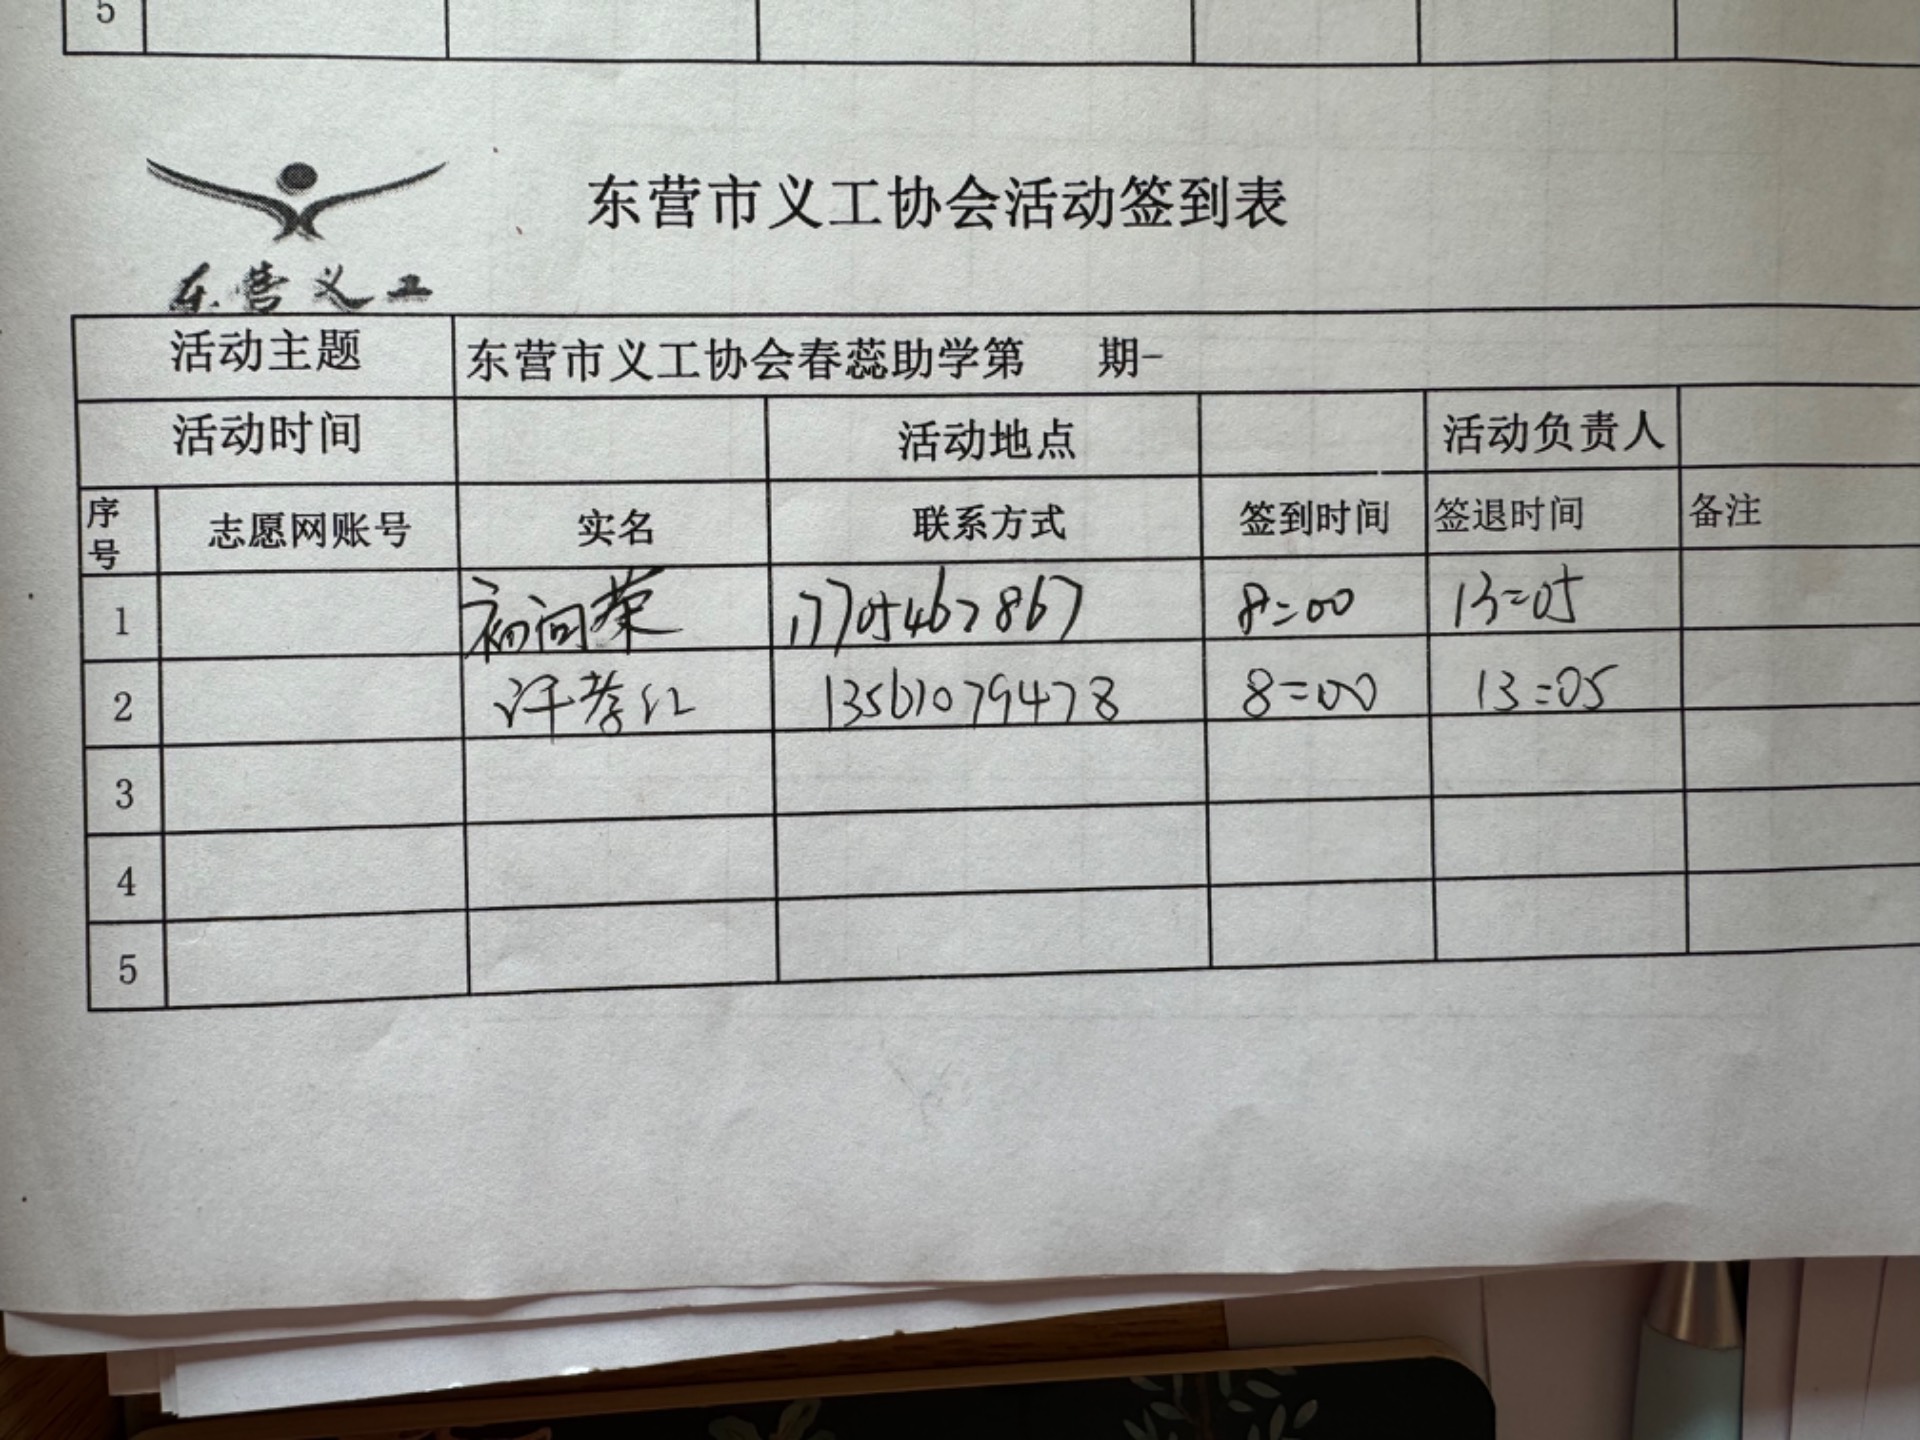 5
东营市义工协会活动签到表
东营义工
活动主题 东营市义工协会春蕊助学第 期-
活动时间 活动地点 活动负责人
序号 志愿网账号 实名 联系方式 签到时间 签退时间 备注
1 初问荣 17705467867 8:00 13:05
2 许孝红 13561079478 8:00 13:05
3
4
5